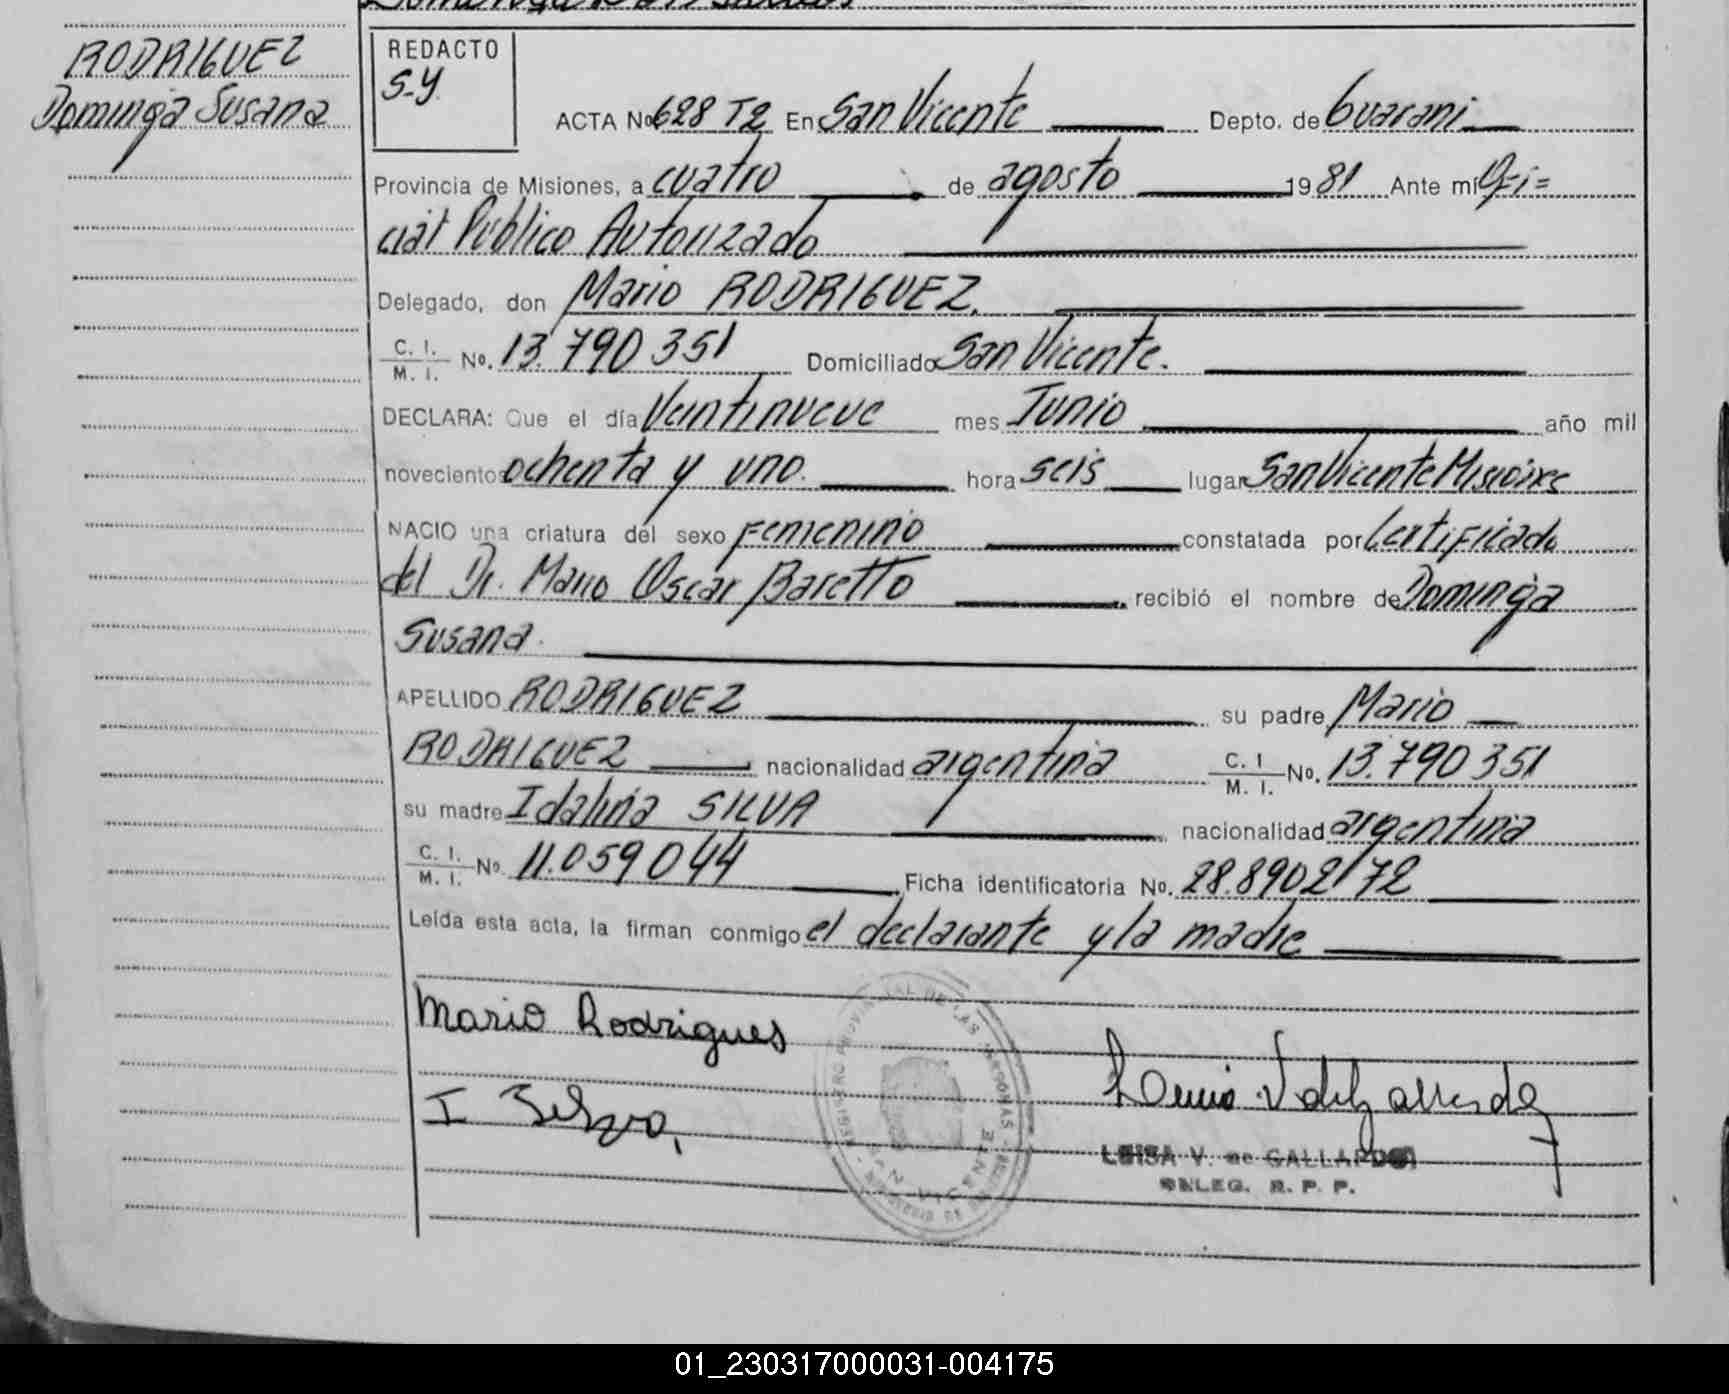 RODRIGUEZ
Dominga Susana
REDACTO
S-Y.
ACTA No 628 T2 En San Vicente Depto. de Guarani
Provincia de Misiones, a cuatro de agosto 1981 Ante mí Ofi=
cial Público Autorizado
Delegado, don Mario RODRIGUEZ.
C. I. / M. I. No. 13.790 351 Domiciliado San Vicente.
DECLARA: Que el día Veintinueve mes Junio año mil
novecientos ochenta y uno. hora seis lugar San Vicente Misiones
NACIO una criatura del sexo Femenino constatada por Certificado
del Dr. Mario Oscar Baretto recibió el nombre de Dominga
Susana.
APELLIDO RODRIGUEZ su padre Mario
RODRIGUEZ nacionalidad argentina C. I / M. I. No. 13.790 351
su madre Idalina SILVA nacionalidad argentina
C. I. / M. I. No. 11.059 044 Ficha identificatoria No. 28.8902/72
Leída esta acta, la firman conmigo el declarante y la madre
Mario Rodrigues
I Silva.
LUISA V. de GALLARDO
DELEG. R. P. P.
SAN VICENTE
01_230317000031-004175